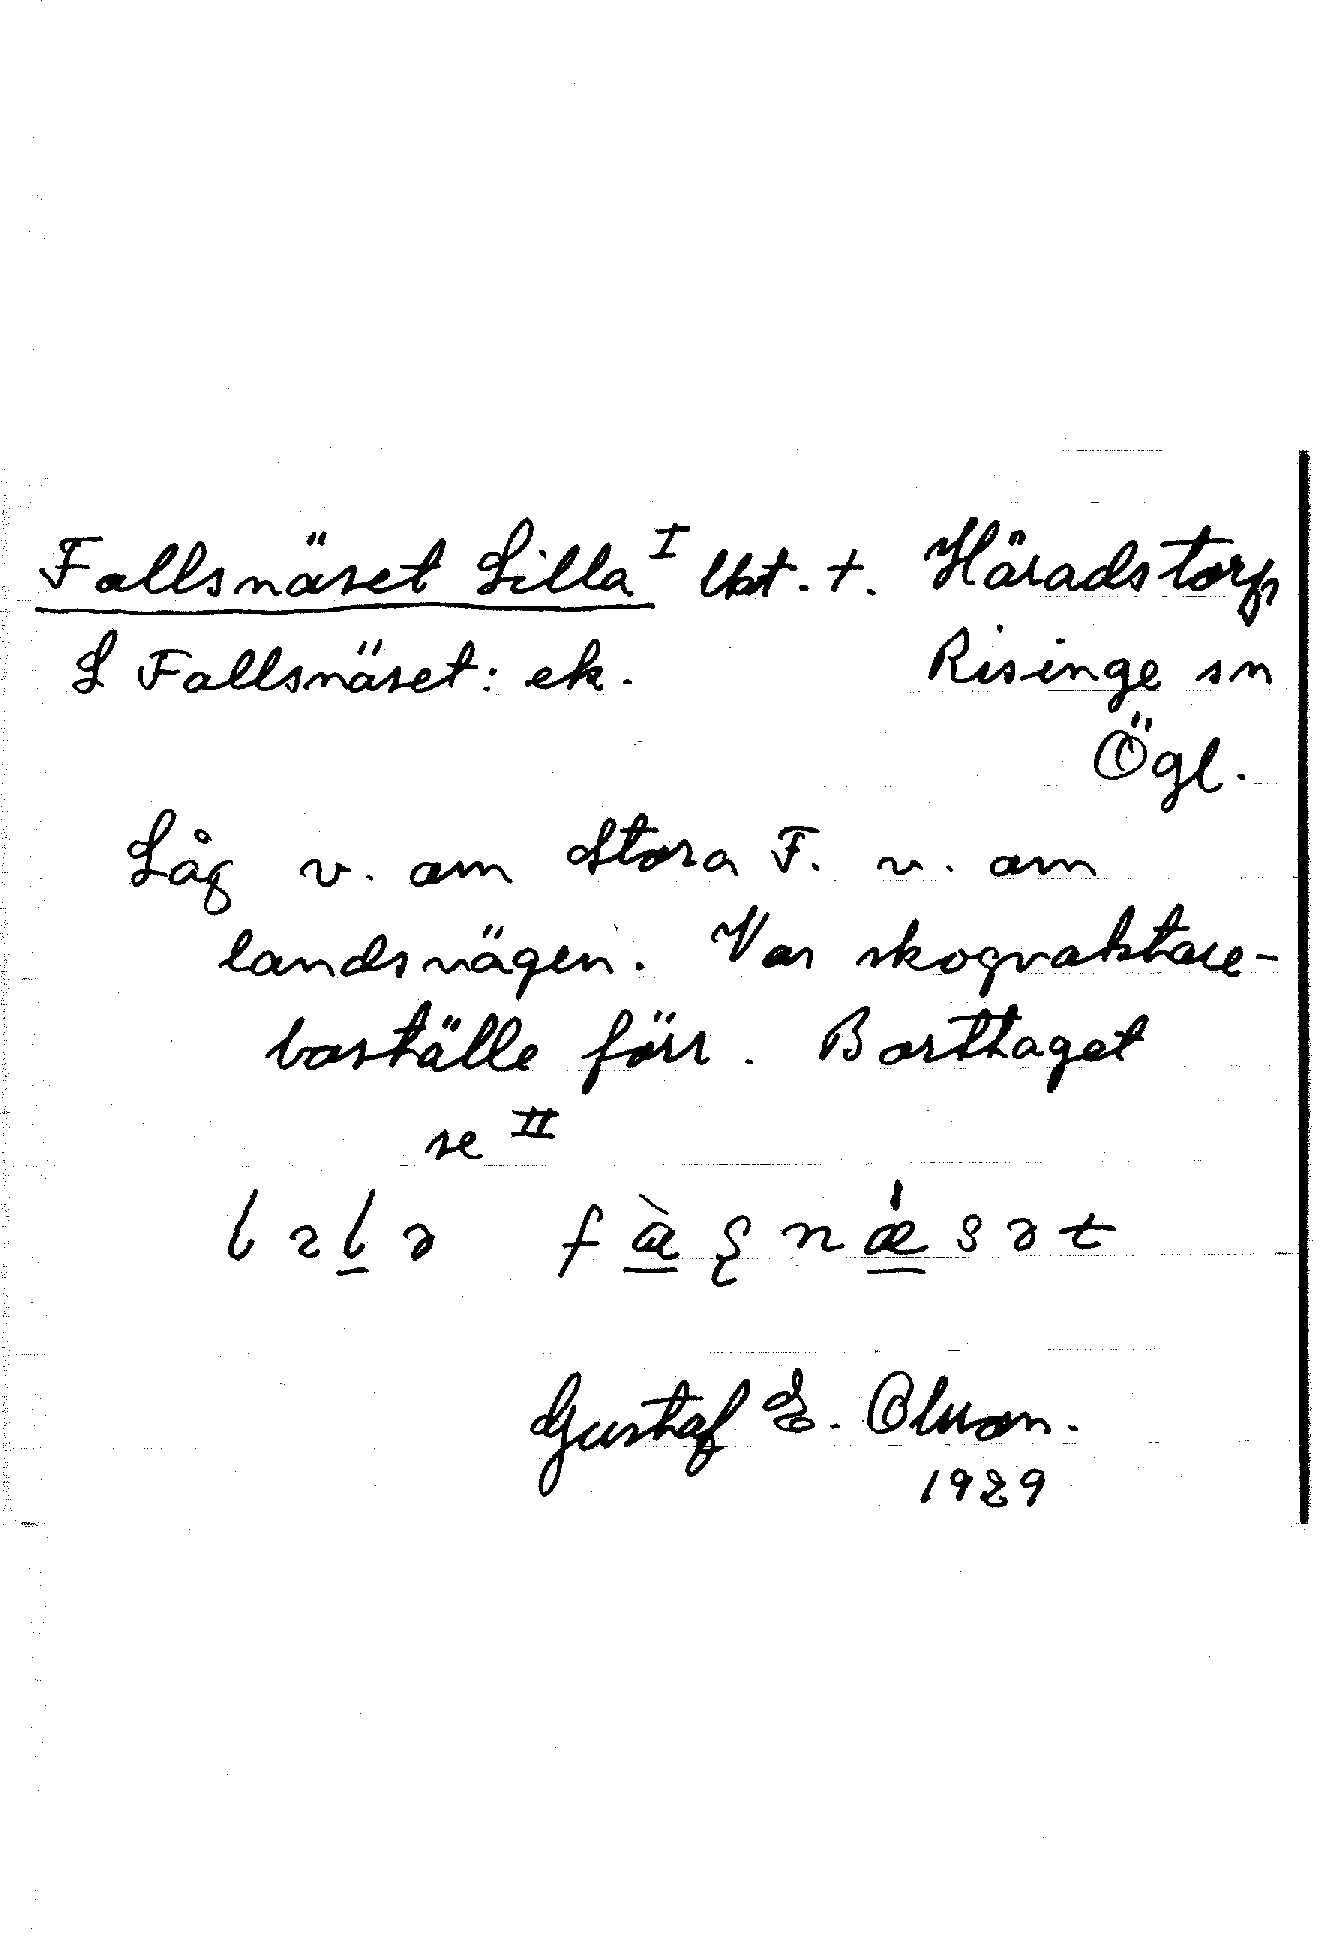 Fallsnäset Lilla I lbt. t. Häradstorp
L Fallsnäset: ek. Risinge sn
Ögl.
Låg v. om Stora F. v. om
landsvägen. Var skogvaktare-
boställe förr. Borttaget
se II
Gustaf E. Olsson.
1929